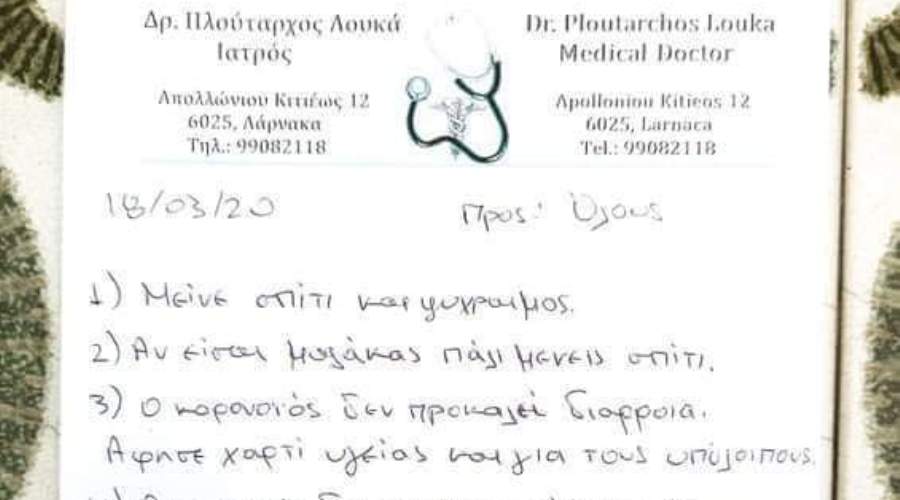 Δρ. Πλούταρχος Λουκά
Ιατρός
Απολλώνιου Κιτιέως 12
6025, Λάρνακα
Τηλ.: 99082118
Dr. Ploutarchos Louka
Medical Doctor
Apolloniou Kitieos 12
6025, Larnaca
Tel.: 99082118
18/03/20
Προς: Όλους
1) Μείνε σπίτι και ψυχραιμος.
2) Αν είσαι μαλάκας πάλι μένεις σπίτι.
3) Ο κορονοιός δεν προκαλεί διαρροια.
Αφησε χαρτί υγείας και για τους υπόλοιπους.